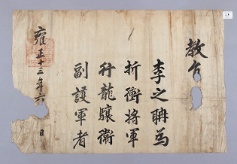 教旨
李之聃爲
折衝將軍
行龍驤衛
副護軍者
雍正十三年六月　日